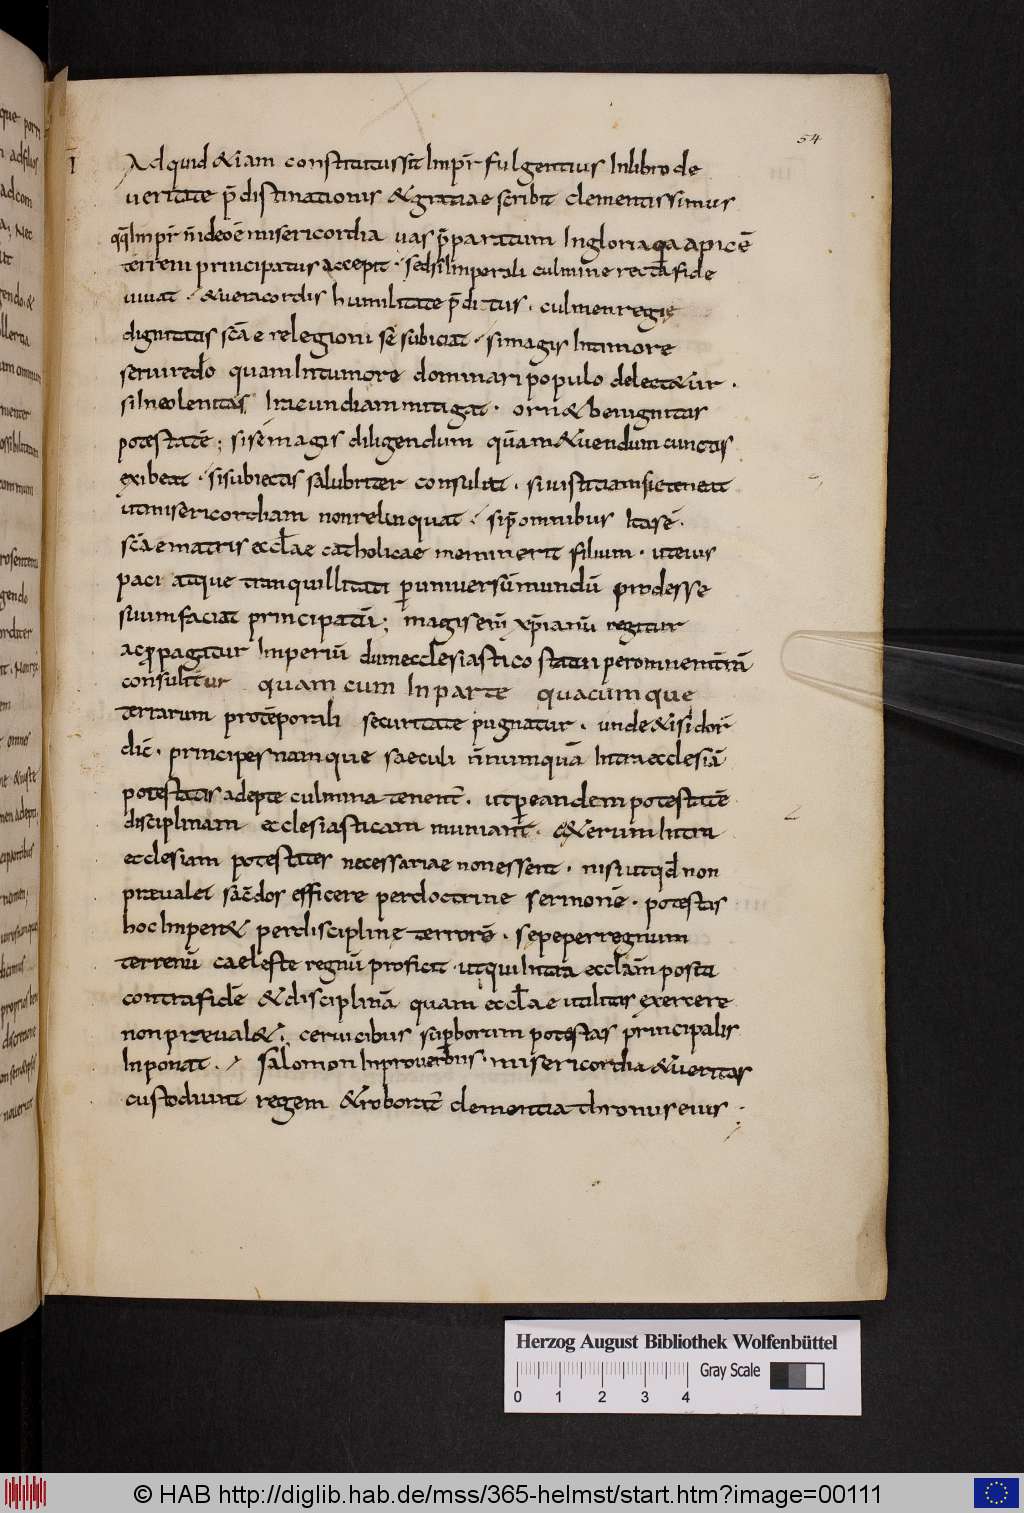 54
Ad quid &iā am constitutus sit imp̄r fulgentius in libro de
ueritate p̄distinationis & gratiae scribit clementissimus
qq̄ imp̄r n̄ ideo ē misericordia uas p̄paratum in gloria qa apicē
terreni principatus accepit · sed si imperali culmine recta fide
uiuat · & uera cordis humilitate p̄ditus · culmen regię
dignitatis sc̄ae relegioni sē subiciat · si magis in timore
seruire dō quam in tumore dominari populo delect&ur ·
si in eo lenitas iracundiam mitigat · orn& benignitas
potestatē ; si sē magis diligendum quam &uendum cunctis
exibeat · si subiectis salubriter consulat · si iustitiam sic teneat
ut misericordiam non relinquat · si p̄ omnibus ita sē ·
sc̄ae matris eccl̄ae catholicae meminerit filium · ut eius
paci atque tranquillitati p uniuersū mundū prodesse
suum faciat principatū ; magis enī xp̄ianū regitur
ac ppagatur imperiū dum ecclesiastico statui per omnem t̄rā
consulitur quam cum in parte quacumque
terrarum pro tēporali securitate pugnatur · unde & isidor̄
dic̄ · principes namque saeculi n̄numquā intra ecclesiā
potestatis adepte culmina tenent · ut p eandem potestatē
disciplinam ecclesiasticam muniant · c&erum intra
ecclesiam potestates necessariae non essent · nisi ut qd̄ non
preualet sac̄dos efficere per doctrine sermonē · potestas
hoc imper& per discipline terrorē · sepe per regnum
terrenū caeleste regnū proficit · ut qui intra eccl̄am posita
contra fidē & disciplinā quam eccl̄ae utilitas exercere
non preual& · ceruicibus superborum potestas principalis
inponat · salomon in prouerbiis · misericordia & ueritas
custodiunt regem & roborat̄ clementia thronus eius ·
Herzog August Bibliothek Wolfenbüttel
Gray Scale
0 1 2 3 4
© HAB http://diglib.hab.de/mss/365-helmst/start.htm?image=00111